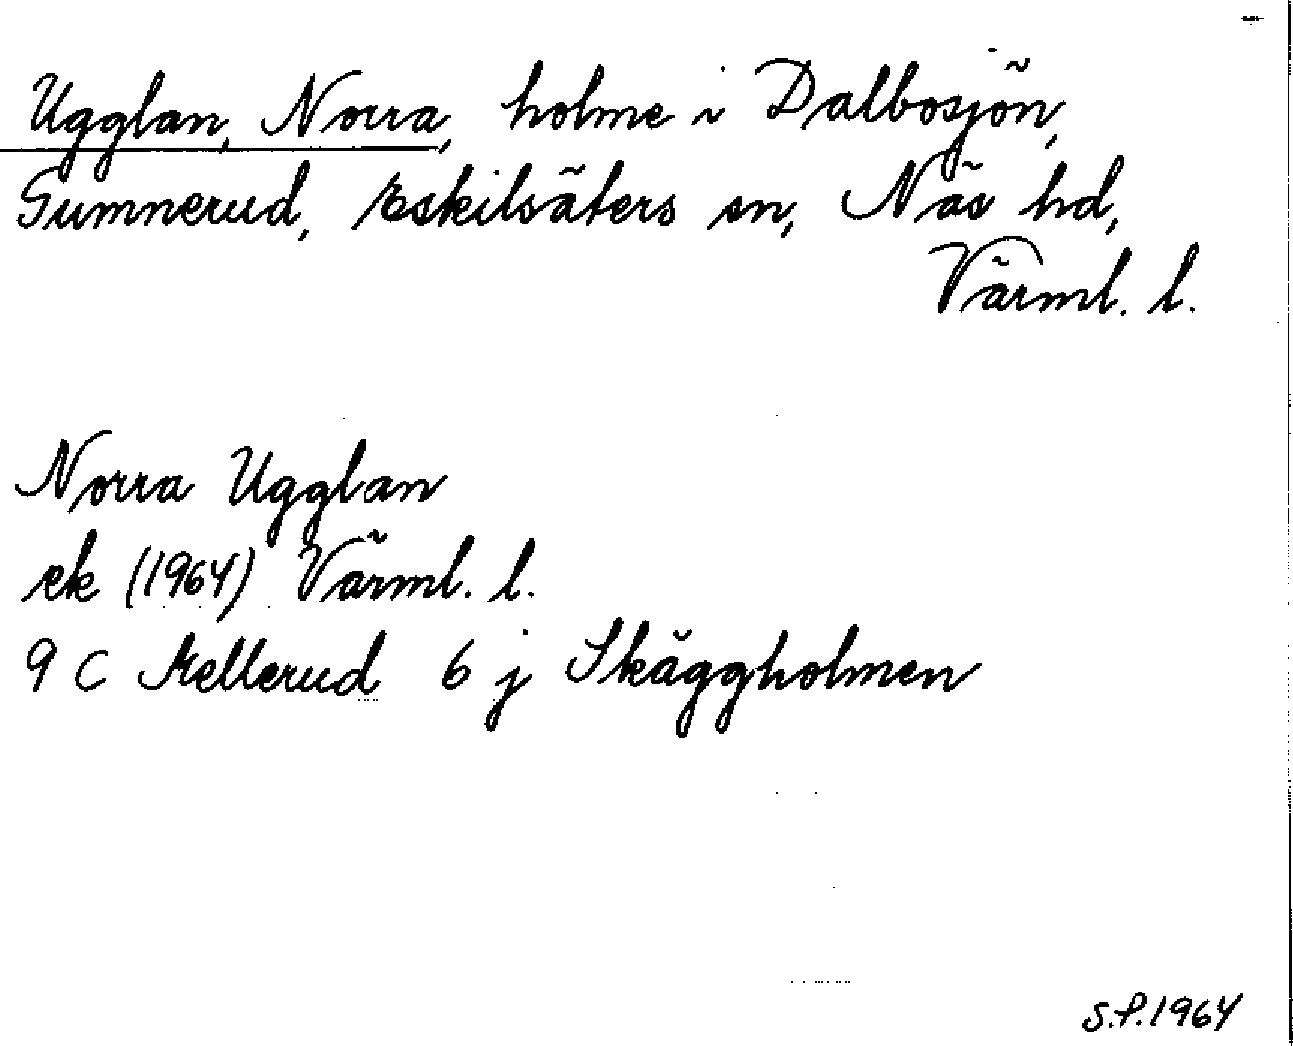 Ugglan, Norra, holme i Dalbosjön,
Gumnerud, Eskilsäters sn, Näs hd,
Värml. l.
Norra Ugglan
ek (1964) Värml. l.
9 C Mellerud 6 j Skäggholmen
S.P.1964